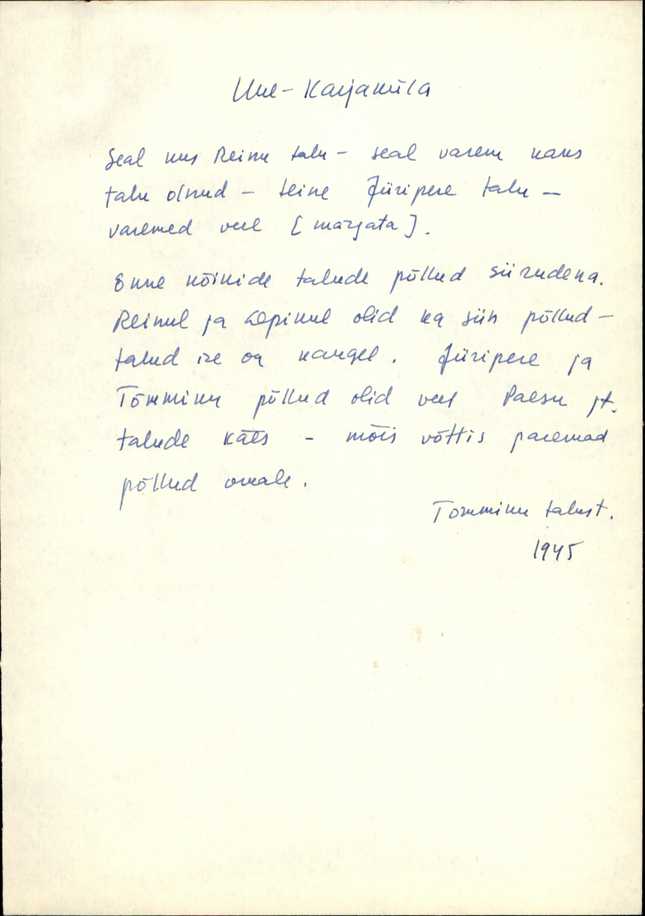 Uue-Karjamüla
Seal kus Reinu talu - seal varem kaks
talu olnud - teine Jüripere talu -
varemed veel [märgata].
Enne kõikide talude põllud siirudena.
Reinul ja Lepikul olid ka siin põllud -
talud ise on kaugel. Jüripere ja
Tomminu põllud olid veel Paesu jt.
talude käes - mõis võttis paremad
põllud omale.
Tomminu talust.
1945